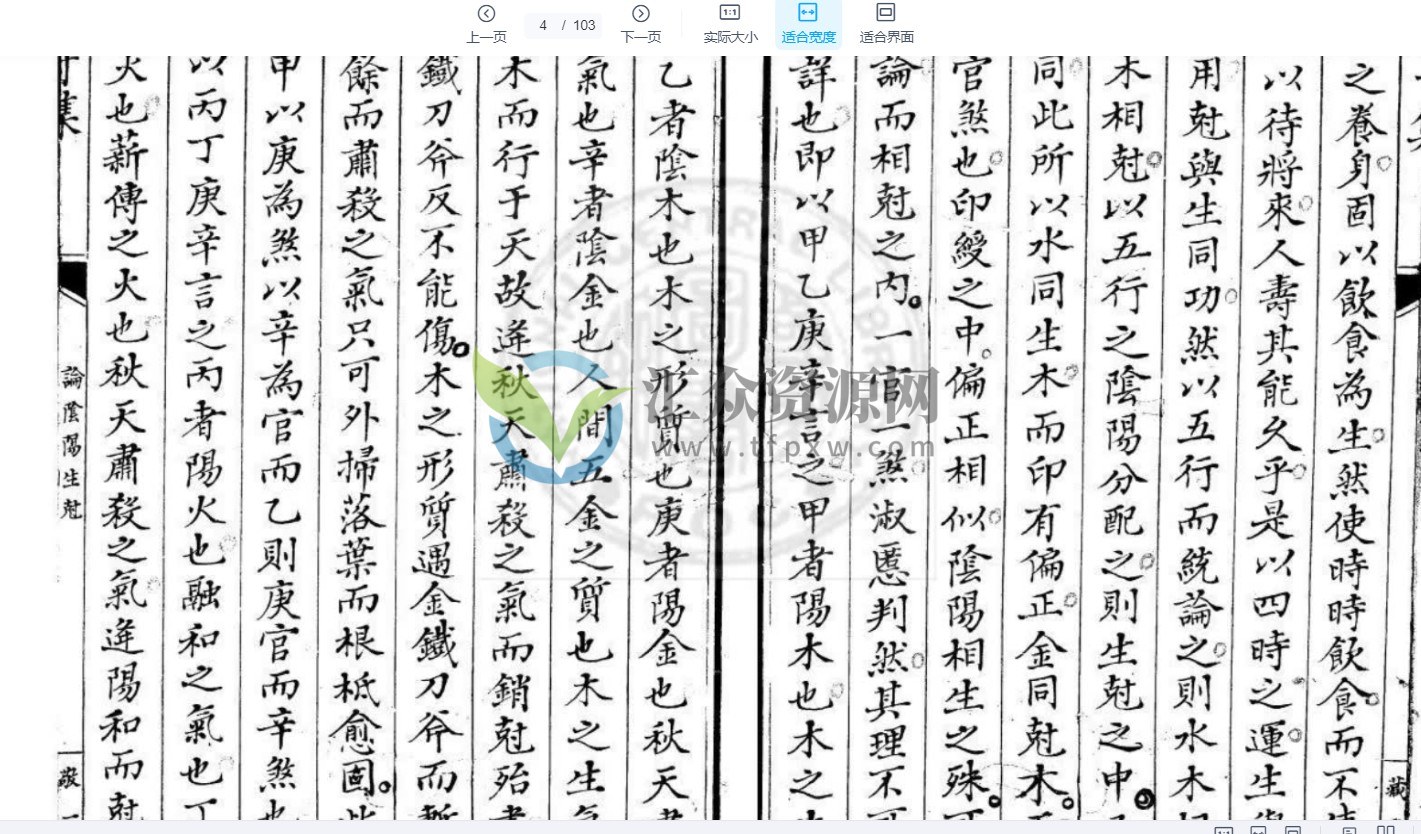 上一页
4 / 103
下一页
1:1
实际大小
适合宽度
适合界面
之養身固以飲食為生然使時時飲食而不
以待將來人壽其能久乎是以四時之運生
用尅與生同功然以五行而統論之則水木
木相尅以五行之陰陽分配之則生尅之中
同此所以水同生木而印有偏正金同尅木
官煞也印綬之中偏正相似陰陽相生之殊
論而相尅之內一官一煞淑慝判然其理不
詳也即以甲乙庚辛言之甲者陽木也木之
乙者陰木也木之形質也庚者陽金也秋天
氣也辛者陰金也人間五金之質也木之生
木而行于天故逢秋天肅殺之氣而銷尅殆
鐵刀斧反不能傷木之形質遇金鐵刀斧而
餘而肅殺之氣只可外掃落葉而根柢愈固
甲以庚為煞以辛為官而乙則庚官而辛煞
以丙丁庚辛言之丙者陽火也融和之氣也丁
火也薪傳之火也秋天肅殺之氣逢陽和而尅
論陰陽生尅
敬
藏
汇众资源网
www.tfpxw.com